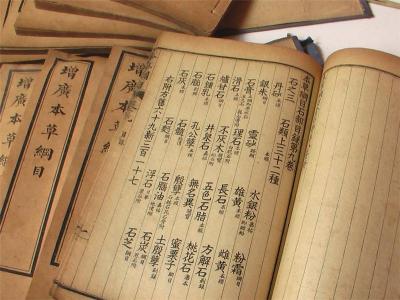 本草綱目石部目錄第九卷
石之三 石類上三十二種
丹砂 水銀粉 粉霜
銀朱 靈砂 雄黃 雌黃
石膏 理石 長石 方解石
滑石 不灰木 五色石脂 桃花石
爐甘石 井泉石 無名異 蜜栗子
石鍾乳 孔公孽 殷孽 土殷孽
石腦 石髓 石腦油 石炭
石灰 石麪 浮石 石芝
右附方舊六十九新三百一十七
增廣本草綱
增廣本草綱目
增廣本草